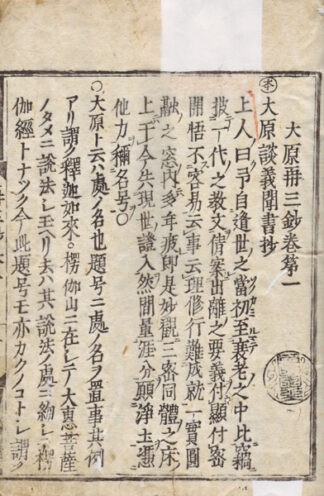 大原冊三鈔卷第一
本
大原談義聞書抄
上人曰予自逢世之當初至衰老之中比竊
披一代之教文倩案出離之要義付顯付密
開悟不容易云事云理修行難成就一實圓
融之窓內多年疲即是妙觀三密同體之床
上于今失現世證入然間量涯分願淨土憑
他力稱名号〇
〇大原ト云ハ處ノ名也題号ニ處ノ名ヲ置事其例
アリ謂ク釋迦如來。楞伽山ニ在シテ大惠菩薩
ノタメニ說法シ玉ヘリ去ハ其說法ノ處ニ約シ楞
伽經トナツク今此題号モ亦カクノコトシ謂ク